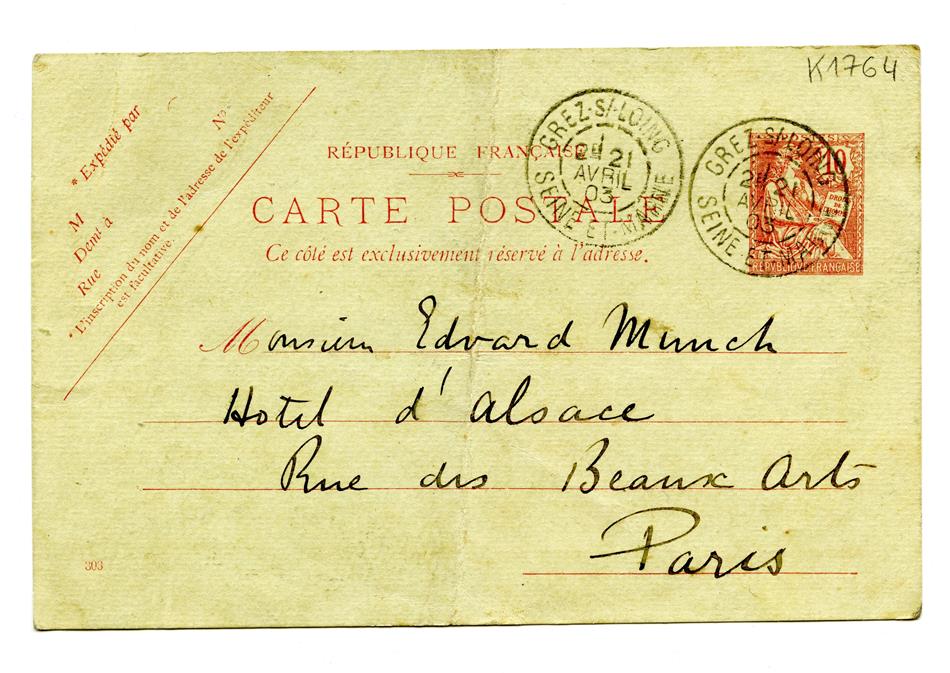 K1764
* Expédié par
M
Demt à
Rue
N°
* L'inscription du nom et de l'adresse de l'expéditeur
est facultative.
RÉPUBLIQUE FRANÇAISE
CARTE POSTALE
Ce côté est exclusivement réservé à l'adresse.
GREZ-S/-LOING
21
AVRIL
03
SEINE-ET-MARNE
GREZ-S/-LOING
AVRIL
03
SEINE-ET-MARNE
10
RÉPUBLIQUE FRANÇAISE
Monsieur Edvard Munch
Hotel d'Alsace
Rue des Beaux Arts
Paris
303